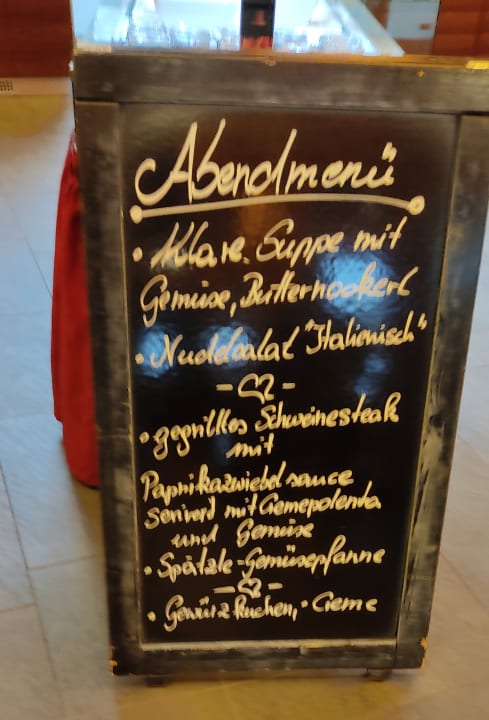 Abendmenü
• Klare Suppe mit
Gemüse, Butternockerl
• Nudelsalat "Italienisch"
• gegrilltes Schweinesteak
mit
Paprikazwiebelsauce
Serviert mit Cremepolenta
und Gemüse
• Spätzle-Gemüsepfanne
• Gewürzkuchen, • Creme